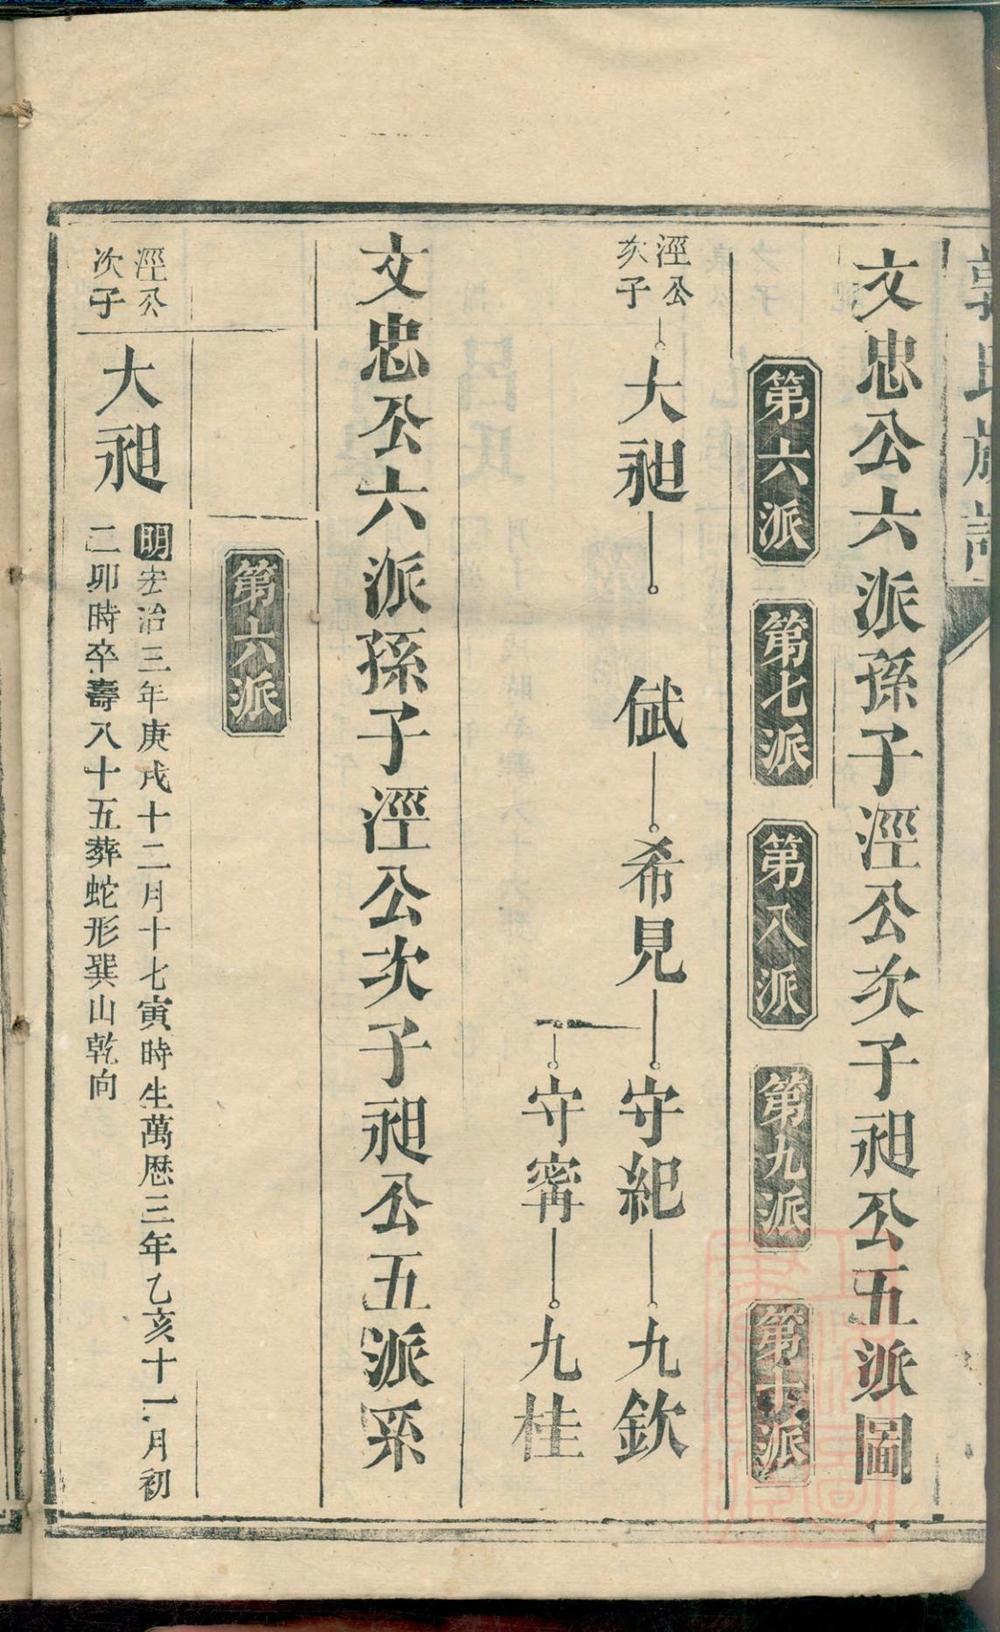 郭氏族譜
文忠公六派孫子涇公次子昶公五派圖
第六派
第七派
第八派
第九派
第十派
涇公
次子
大昶
侙
希見
守紀
九欽
守寗
九桂
文忠公六派孫子涇公次子昶公五派系
第六派
涇公
次子
大昶
明宏治三年庚戌十二月十七寅時生萬厯三年乙亥十一月初
二卯時卒壽八十五葬蛇形巽山乾向